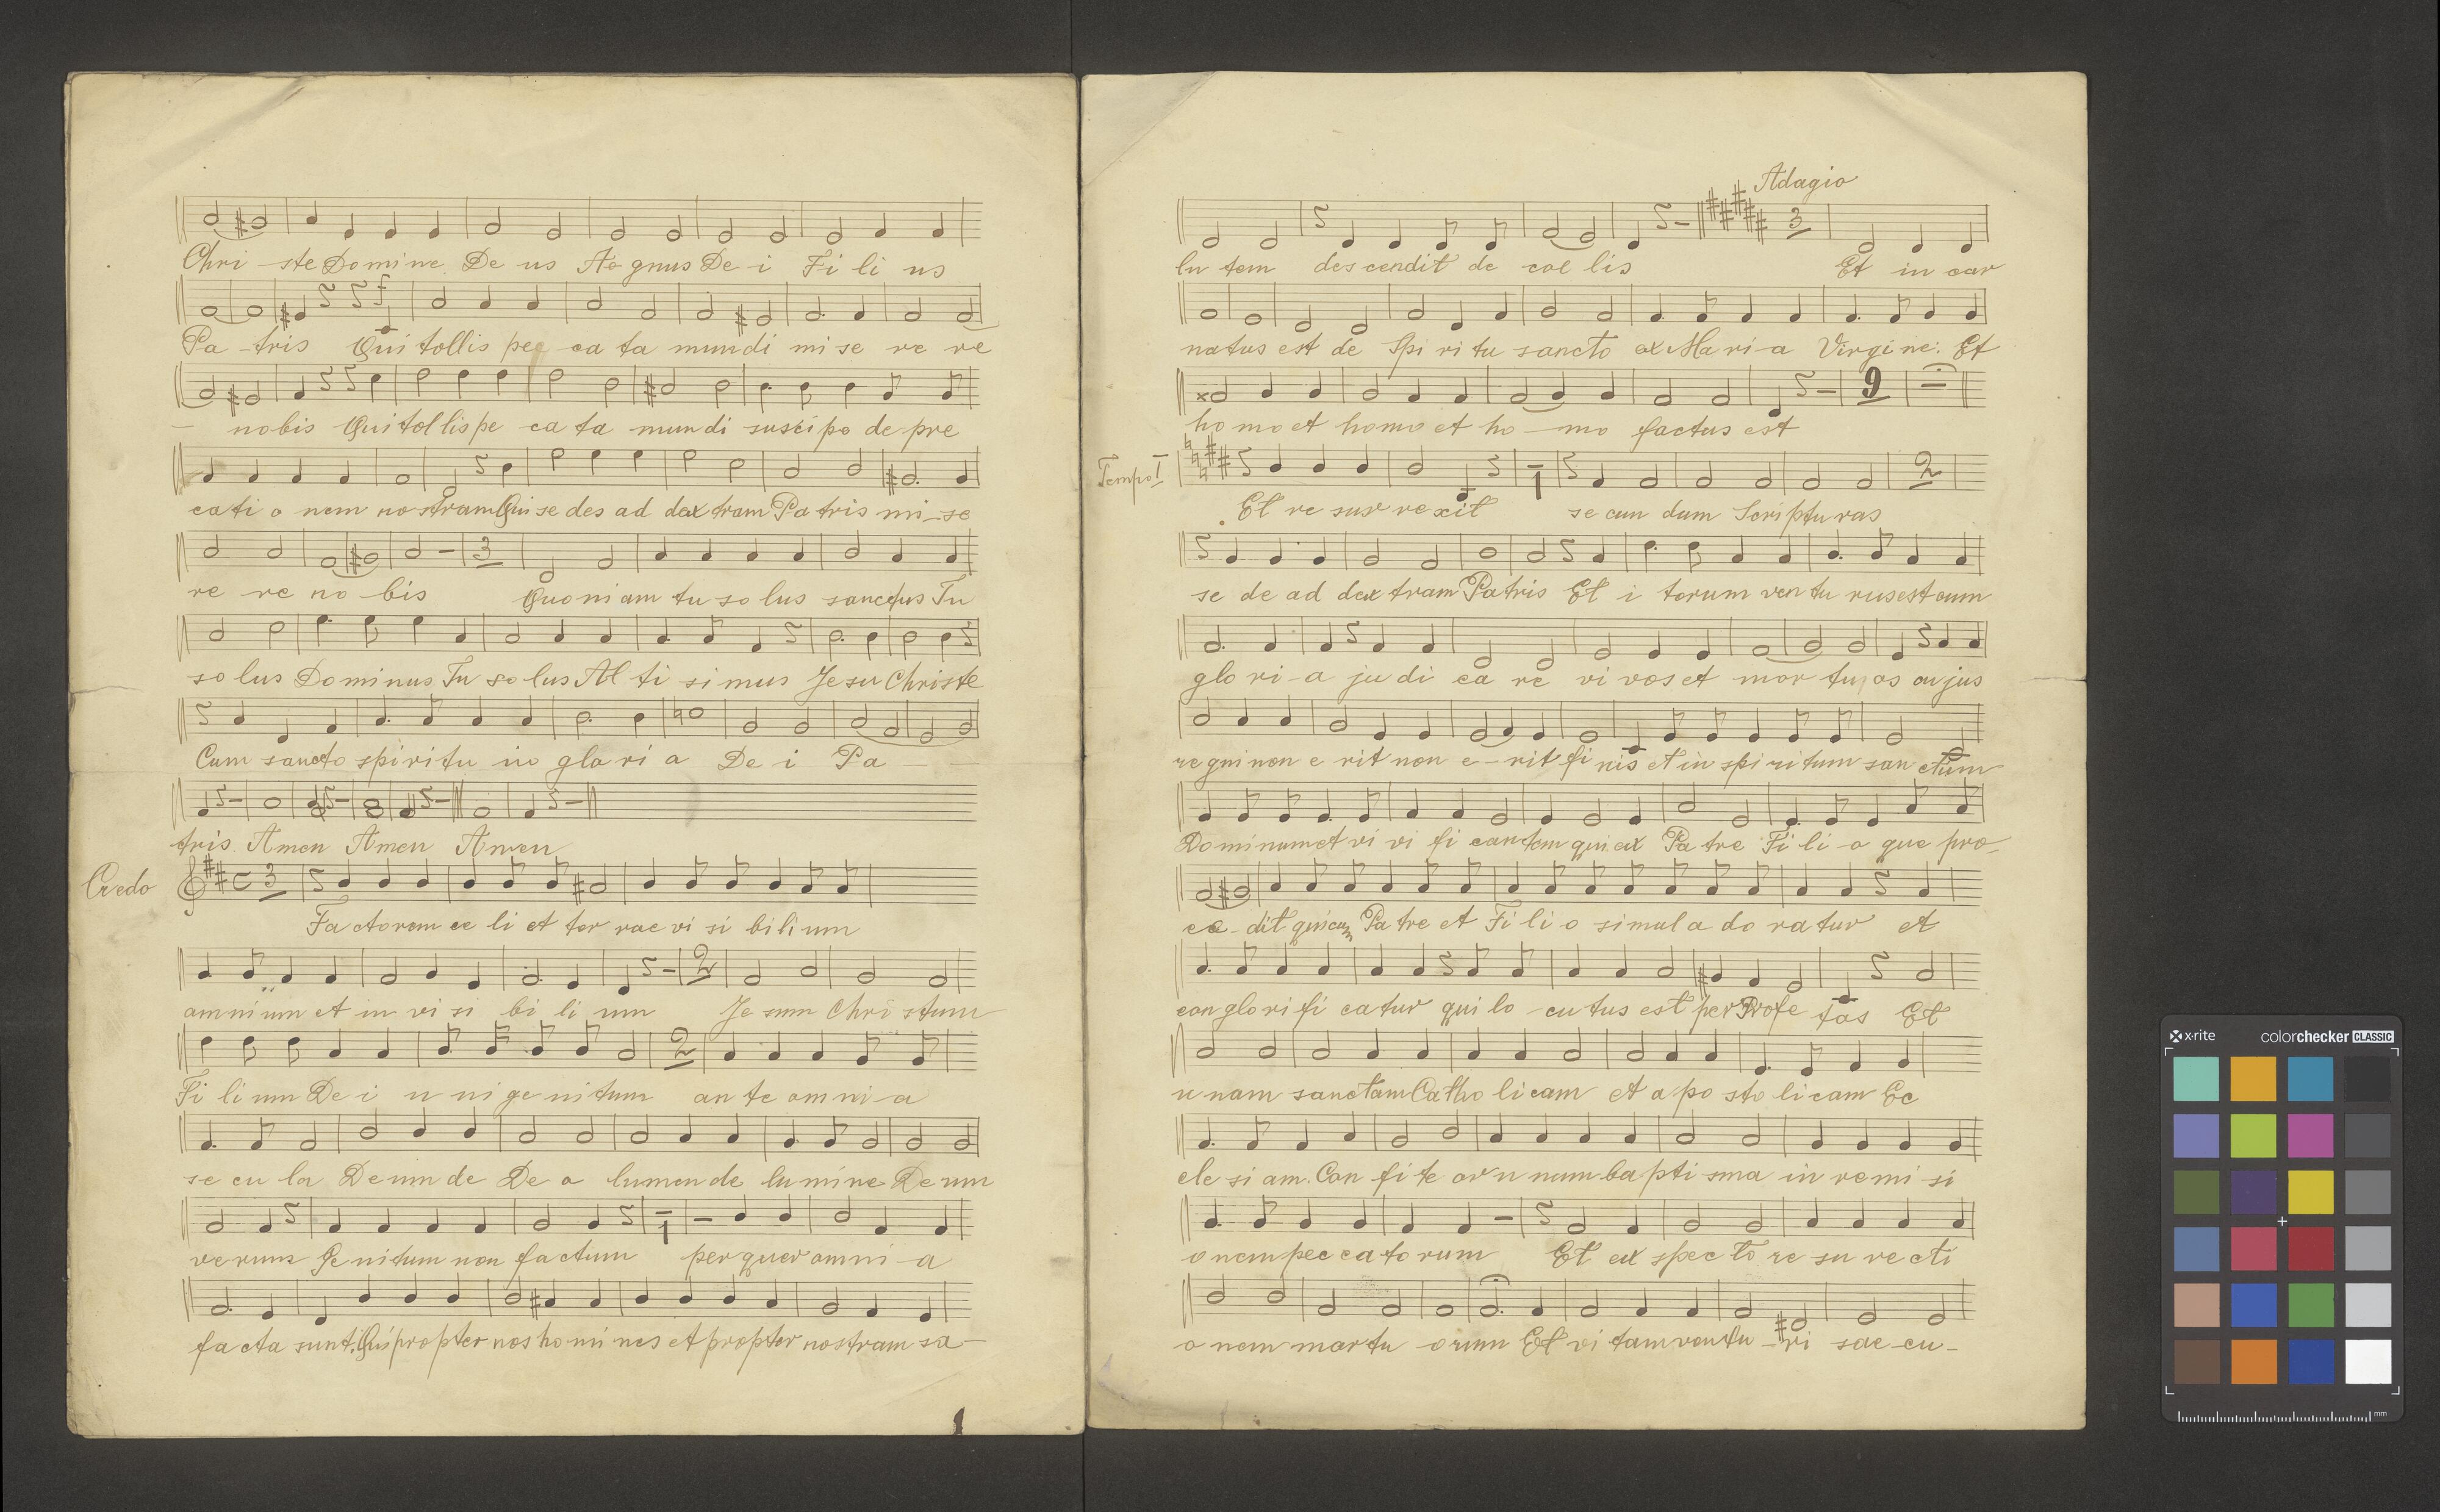 Chri - ste Domine De us A gnus De i Fi li us
Pa - tris Qui tollis pec ca ta mundi mi se re re
- nobis Qui tol lis pe ca ta mun di suscipe de pre
cati o nem nostram Qui se des ad dextram Pa tris mi - se
re re no bis 3 Quoniam tu so lus sanctus Tu
so lus Dominus Tu so lus Al ti si mus Jesu Christe
Cum sancto spiritu in glo ri a De i Pa - -
tris. Amen Amen Amen
Credo C 3
Factorem ce li et ter rae vi si bilium
omnium et in vi si bi li um 2 Je sum Chri stum
Fi li um De i u ni ge nitum 2 an te om ni - a
se cu la Deum de De o lumen de lu mine De um
verum Ge nitum non factum 1 per quem omni - a
fa cta sunt. Qui propter nos ho mi nes et propter nostram sa -
Adagio
lu tem des cendit de coe lis 3 Et in car
natus est de Spi ri tu sancto ex Ma ri - a Virgi ne. Et
ho mo et homo et ho - mo factus est 9
Tempo I
Et re sur rexit 1 se cun dum Scriptu ras 2
se de ad dex tram Patris Et i terum ven tu rus est cum
glo ri - a ju di ca re vi vos et mor tu os cujus
regni non e rit non e - rit fi nis et in spi ri tum san ctum
Dominum et vi vi fi cantem qui ex Pa tre Fi li - o que pro -
ce - dit qui cum Pa tre et Fi li o simul a do ratur et
con glo ri fi catur qui lo - cu tus est per Profe tas Et
u nam sanctam Catho li cam et a po sto li cam Ec
cle si am. Con fi te or u num ba pti sma in re mi si
o nem pec ca to rum Et ex spec to re su recti
o nem mortu orum Et vi tam ventu - ri sae - cu -
x-rite colorchecker CLASSIC
mm